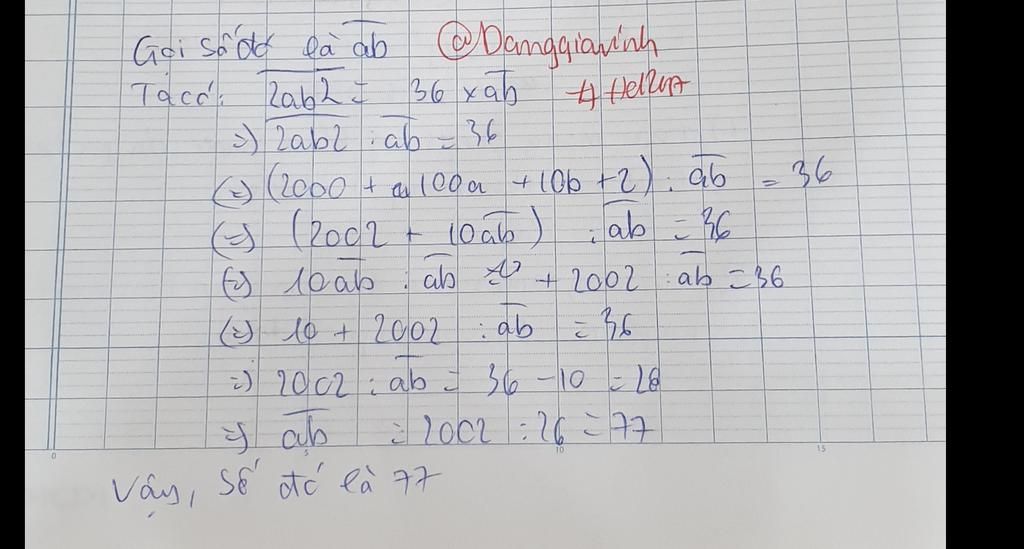 Gọi số đó là ab @Damggiavinh
Ta có: 2ab2 = 36 x ab
=> 2ab2 : ab = 36
(=) (2000 + a100a + 10b + 2) : ab = 36
(=) (2002 + 10ab) : ab = 36
(=) 10ab : ab + 2002 : ab = 36
(=) 10 + 2002 : ab = 36
=> 2002 : ab = 36 - 10 = 26
=> ab = 2002 : 26 = 77
Vậy, số đó là 77
0 10 15